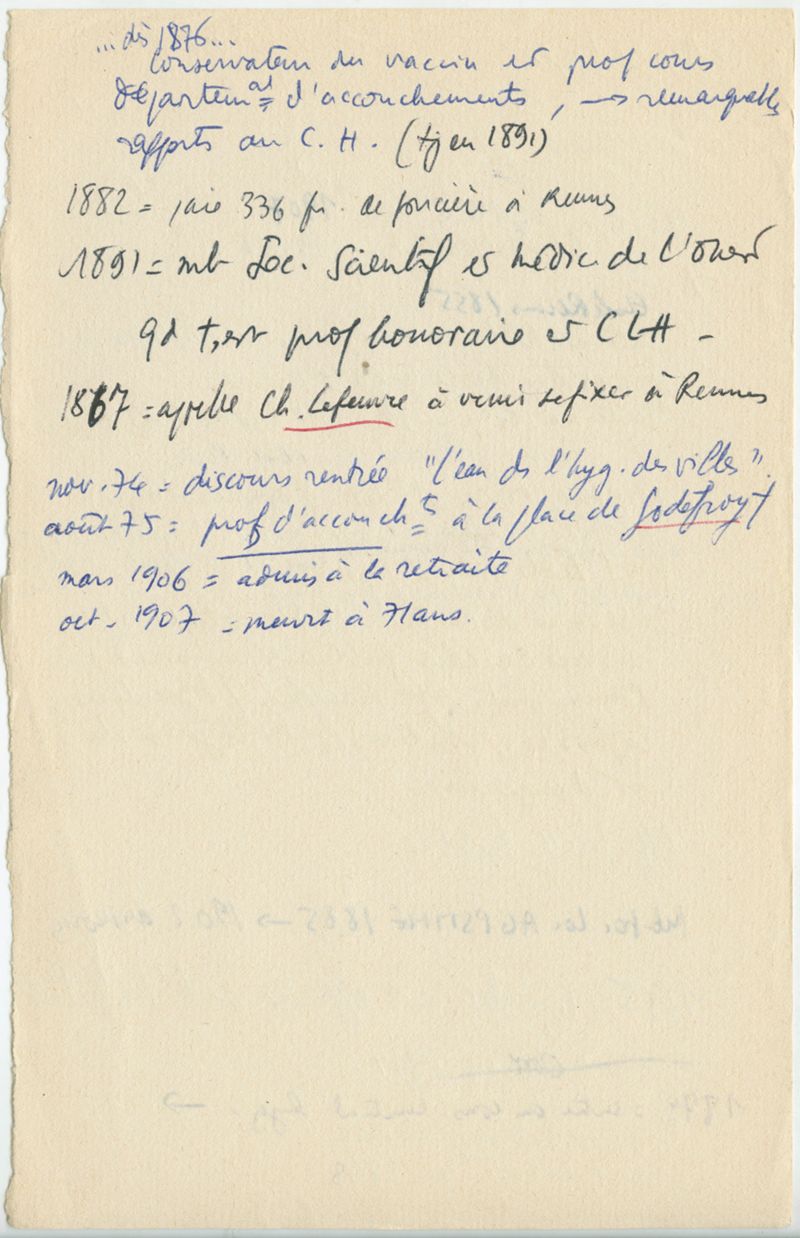 ...dès 1876...
Conservateur du vaccin et prof cours
départemal d'accouchements, → remarquables
rapports au C. H. (tj en 1891)
1882 = paie 336 fr. de foncière à Rennes
1891 = mb Soc. Scientif et médic. de l'Ouest
qd †, est prof honoraire et CLH -
1867 = appelle Ch. Lefeuvre à venir se fixer à Rennes
nov. 74 = discours rentrée "l'eau ds l'hyg. des villes".
août 75 = prof d'accoucht à la place de Godefroy †
mars 1906 = admis à la retraite
oct. 1907 = meurt à 71 ans.